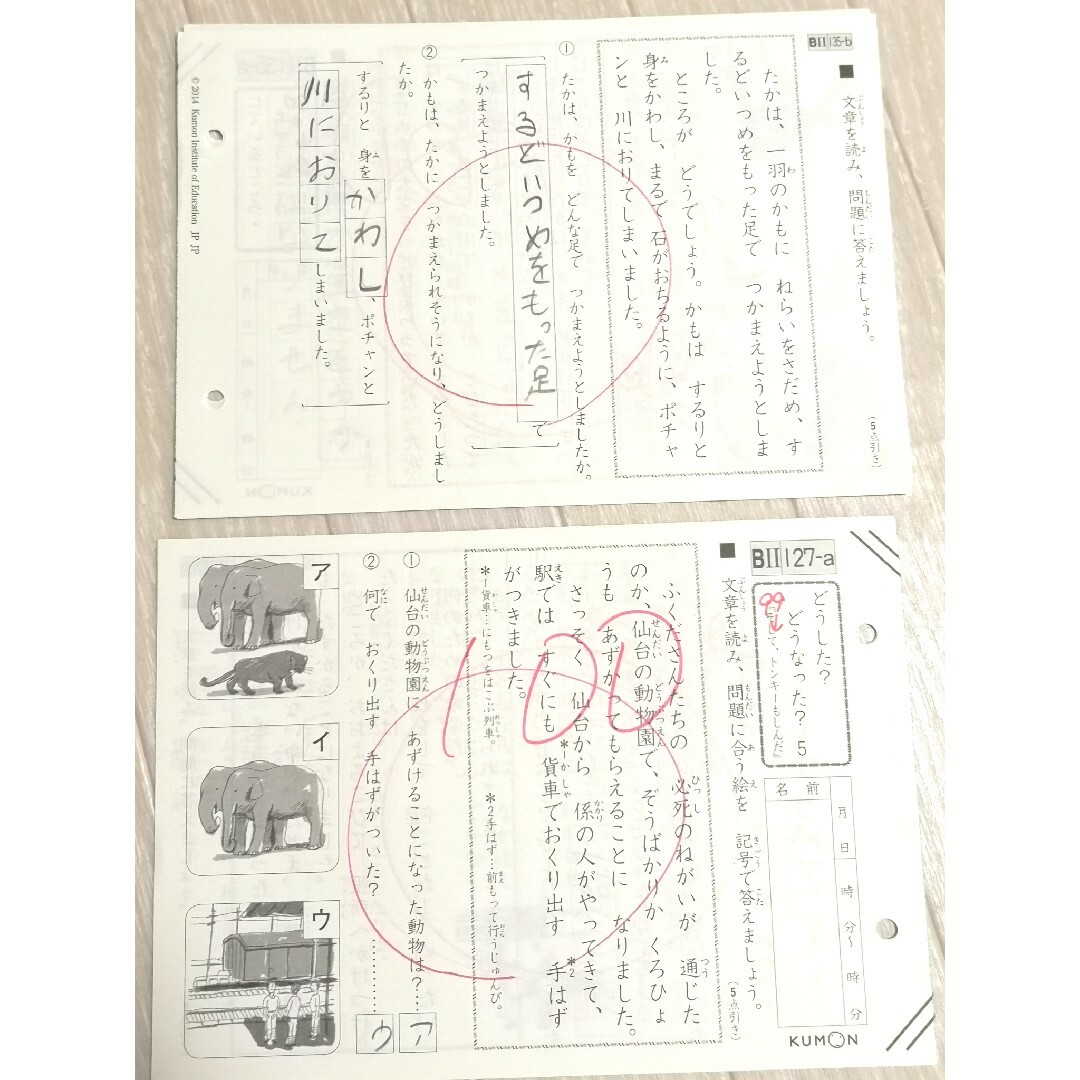 BII 135-b
■ 文章を読み、問題に答えましょう。
(5点引き)
たかは、一羽のかもに ねらいをさだめ、す
るどいつめをもった足で つかまえようとしま
した。
ところが どうでしょう。かもは するりと
身をかわし、まるで 石がおちるように、ポチャ
ンと 川におりてしまいました。
① たかは、かもを どんな足で つかまえようとしましたか。
するどいつめをもった足で
つかまえようとしました。
② かもは、たかに つかまえられそうになり、どうしまし
たか。
するりと 身をかわし、ポチャンと
川におりてしまいました。
© 2014 Kumon Institute of Education JP JP
BII 127-a
どうした?
どうなった? 5
て、トンキーもしんだ』
名前
月 日
時 分〜 時 分
KUMON
■ 文章を読み、問題に合う絵を 記号で答えましょう。
(5点引き)
100
ふくださんたちの 必死のねがいが 通じた
のか、仙台の動物園で、ぞうばかりか くろひょ
うも あずかってもらえることに なりました。
さっそく 仙台から 係の人がやってきて、
駅では すぐにも *1貨車でおくり出す *2手はず
がつきました。
*1貨車…にもつをはこぶ列車。 *2手はず…前もって行うじゅんび。
① 仙台の動物園に あずけることになった動物は?…ア
② 何で おくり出す 手はずがついた?…………ウ
ア
イ
ウ